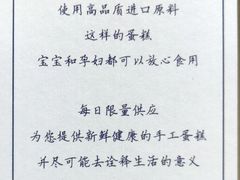 使用高品质进口原料
这样的蛋糕
宝宝和孕妇都可以放心食用
每日限量供应
为您提供新鲜健康的手工蛋糕
并尽可能去诠释生活的意义